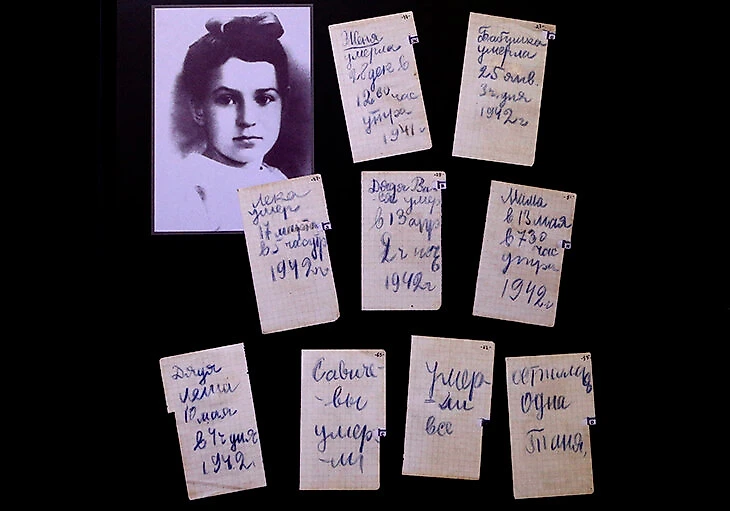 Женя
умерла
28 дек в
12 00 час
утра
1941 г
Бабушка
умерла
25 янв.
3 ч. дня
1942 г
Лека
умер
17 марта
в 5 час утр
1942 г
Дядя Ва-
ся умер
в 13 апр
2 ч ноч
1942 г
Мама
в 13 мая
в 7 30
час
утра
1942 г
Дядя
Леша
10 мая
в 4 ч дня
1942
Савиче-
-вы
умер
-ли
умер-
-ли
все
осталась
одна
Таня,